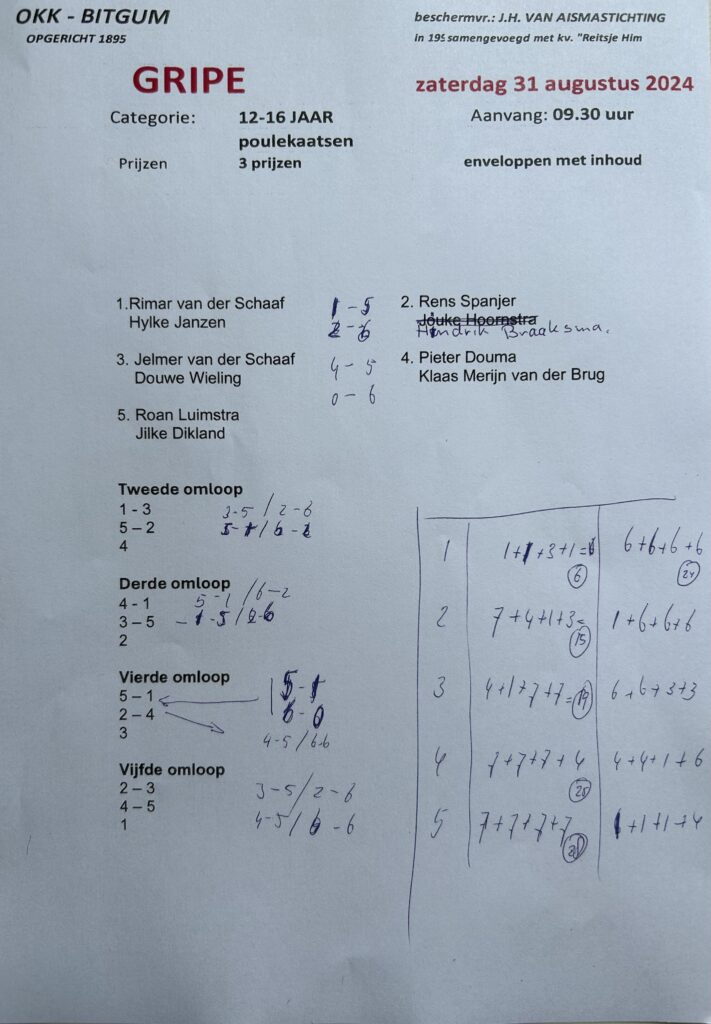 OKK - BITGUM
OPGERICHT 1895
beschermvr.: J.H. VAN AISMASTICHTING
in 195 samengevoegd met kv. "Reitsje Him
GRIPE
zaterdag 31 augustus 2024
Categorie: 12-16 JAAR
poulekaatsen
Aanvang: 09.30 uur
Prijzen 3 prijzen
enveloppen met inhoud
1.Rimar van der Schaaf 1 - 5 2. Rens Spanjer
Hylke Janzen 2 - 6 Jouke Hoornstra
Hendrik Braaksma.
3. Jelmer van der Schaaf 4 - 5 4. Pieter Douma
Douwe Wieling 0 - 6 Klaas Merijn van der Brug
5. Roan Luimstra
Jilke Dikland
Tweede omloop
1 - 3 3-5 / 2-6
5 – 2 5-1 / 6-2
4
Derde omloop
4 - 1 5-1 / 6-2
3 – 5 1-5 / 2-6
2
Vierde omloop
5 – 1 5-1
2 – 4 6-0
3 4-5 / 6-6
Vijfde omloop
2 – 3 3-5 / 2-6
4 – 5 4-5 / 6-6
1
1 1+1+3+1=6 6+6+6+6
6 24
2 7+4+1+3= 1+6+6+6
15
3 4+1+7+7=19 6+6+3+3
4 7+7+7+4 4+4+1+6
25
5 7+7+7+7 1+1+1+4
28